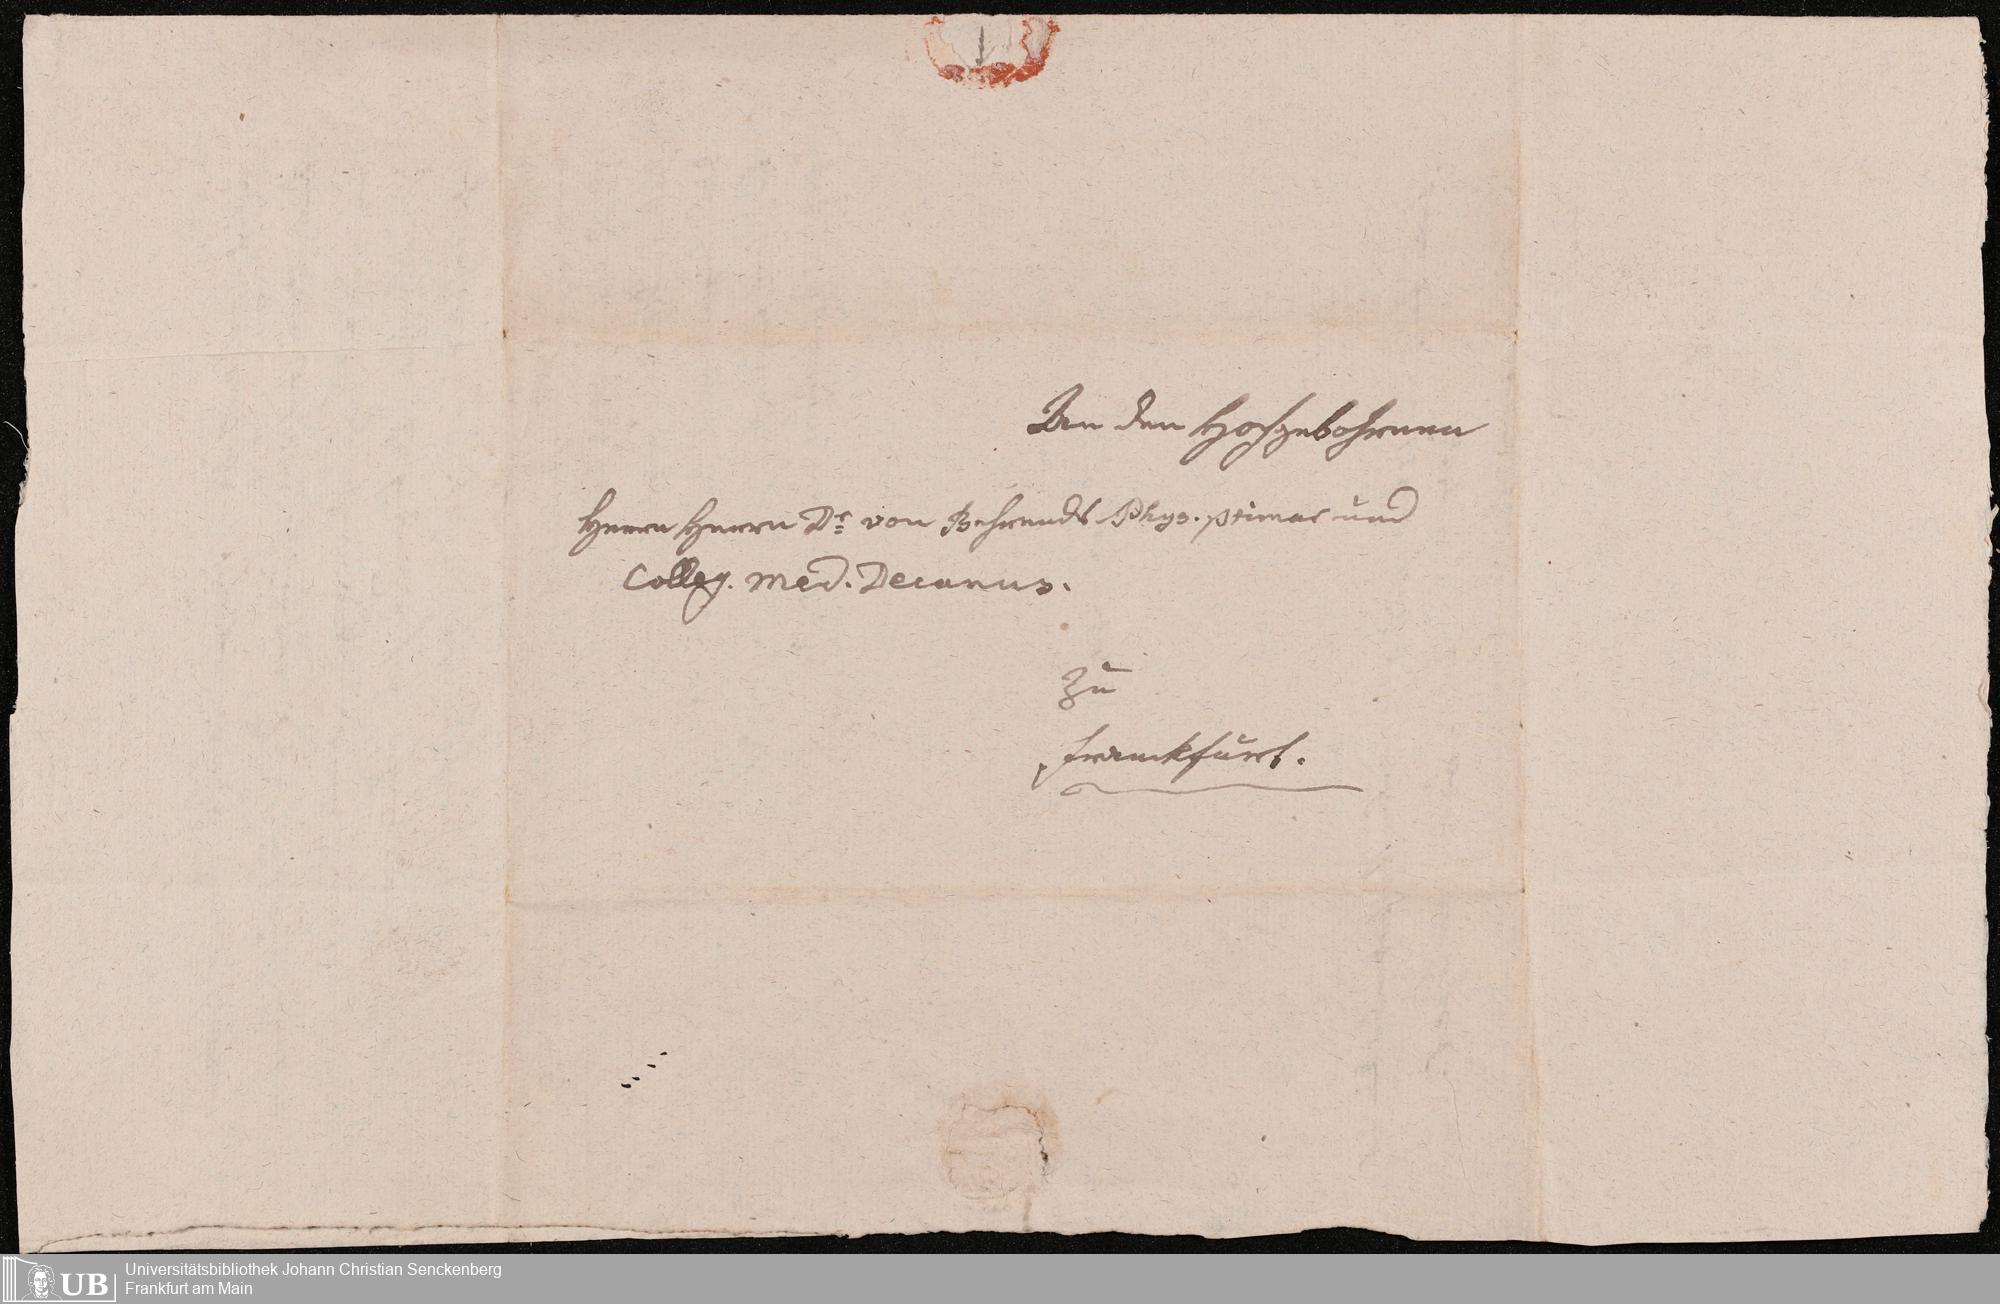 An den Hochgebohrnen
Herrn Herrn Dr. von Behrends Phys. primar und
Colleg. Med. Decanus.
Zu
Franckfurt.
UB
Universitätsbibliothek Johann Christian Senckenberg
Frankfurt am Main